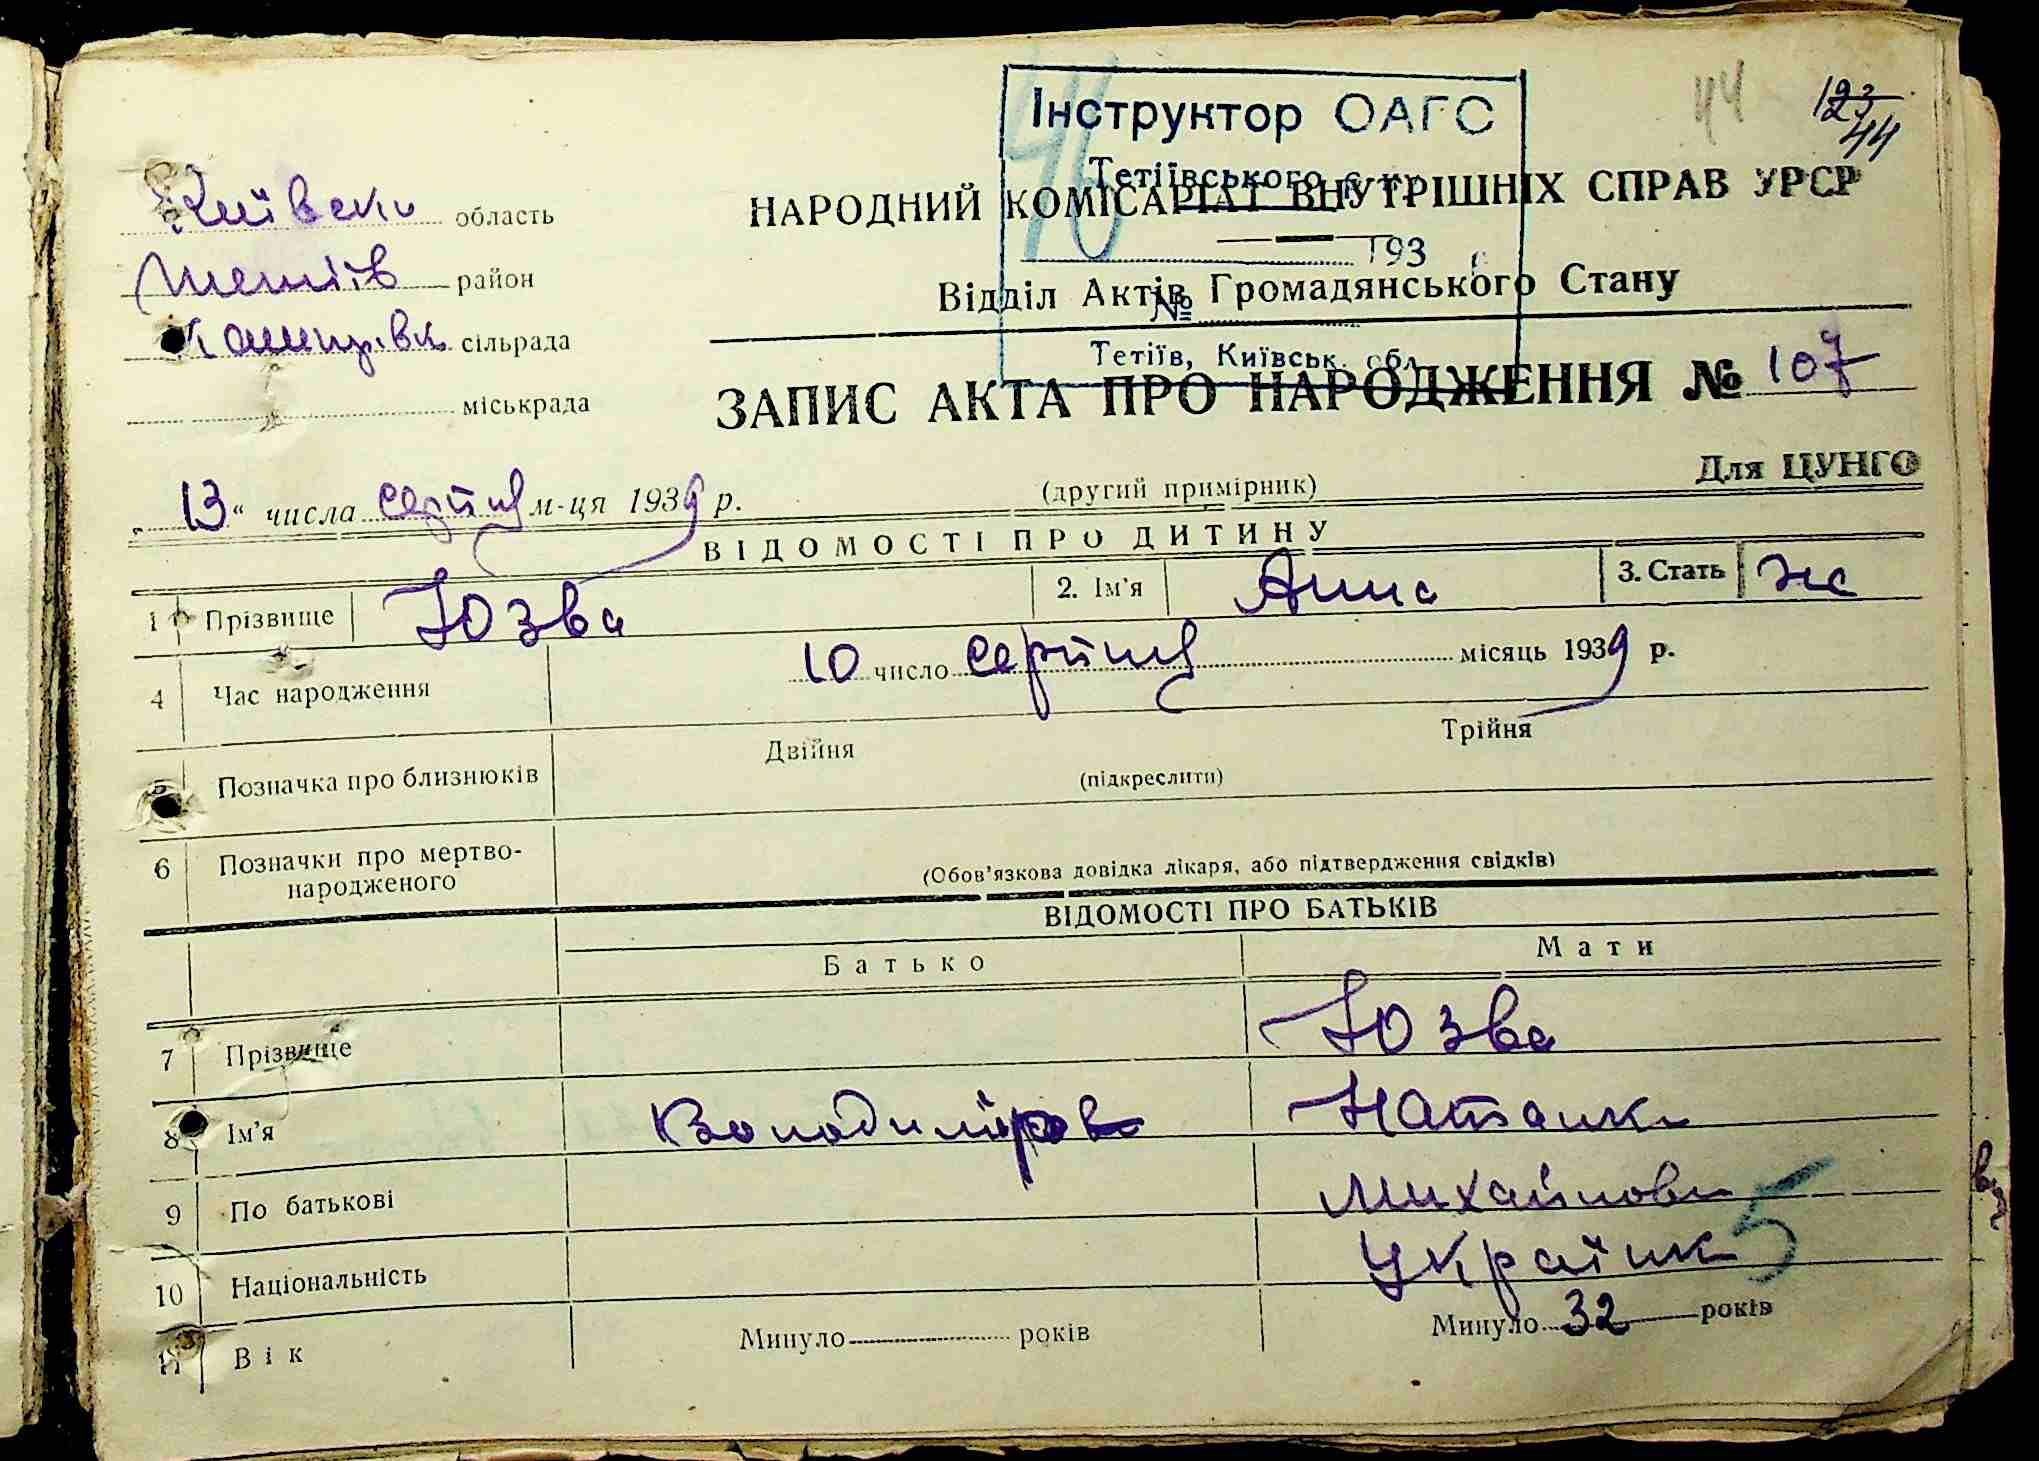 44 123
44
46
Інструктор ОАГС
Тетіївського р-ну
193 р.
№
Тетіїв, Київськ. обл.
Київськ область
Тетіїв район
Кашперівк сільрада
міськрада
НАРОДНИЙ КОМІСАРІАТ ВНУТРІШНІХ СПРАВ УРСР
Відділ Актів Громадянського Стану
ЗАПИС АКТА ПРО НАРОДЖЕННЯ № 107
Для ЦУНГО
(другий примірник)
13" числа серпня м-ця 1939 р.
ВІДОМОСТІ ПРО ДИТИНУ
1 Прізвище Юзва 2. Ім'я Анна 3. Стать ж
4 Час народження 10 число серпня місяць 1939 р.
5 Позначка про близнюків Двійня Трійня
(підкреслити)
6 Позначки про мертво-
народженого
(Обов'язкова довідка лікаря, або підтвердження свідків)
ВІДОМОСТІ ПРО БАТЬКІВ
Батько Мати
7 Прізвище Юзва
8 Ім'я Володимиров Наталка
9 По батькові Михайлов
10 Національність Українк
5
11 Вік Минуло років Минуло 32 років